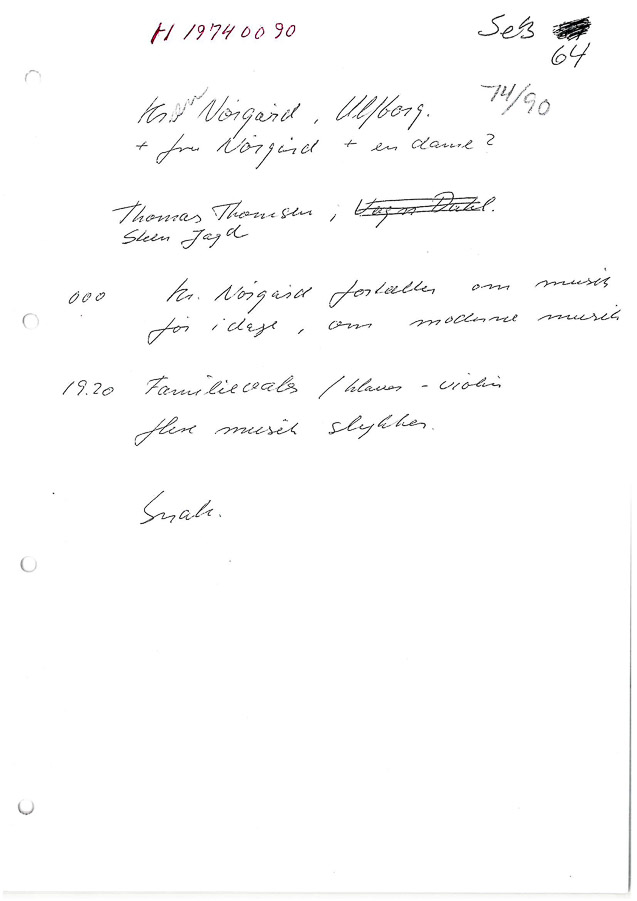 H 1974 00 90
SeB
64
74/90
Kr. Nørgård, Ulfborg.
+ fru Nørgård + en dame?
Thomas Thomsen, Vagn Dahl.
Steen Jagd
000 Kr. Nørgård fortæller om musik
før i dage, om moderne musik
19.20 Familievals / klaver - violin
flere musik stykker.
Snak.